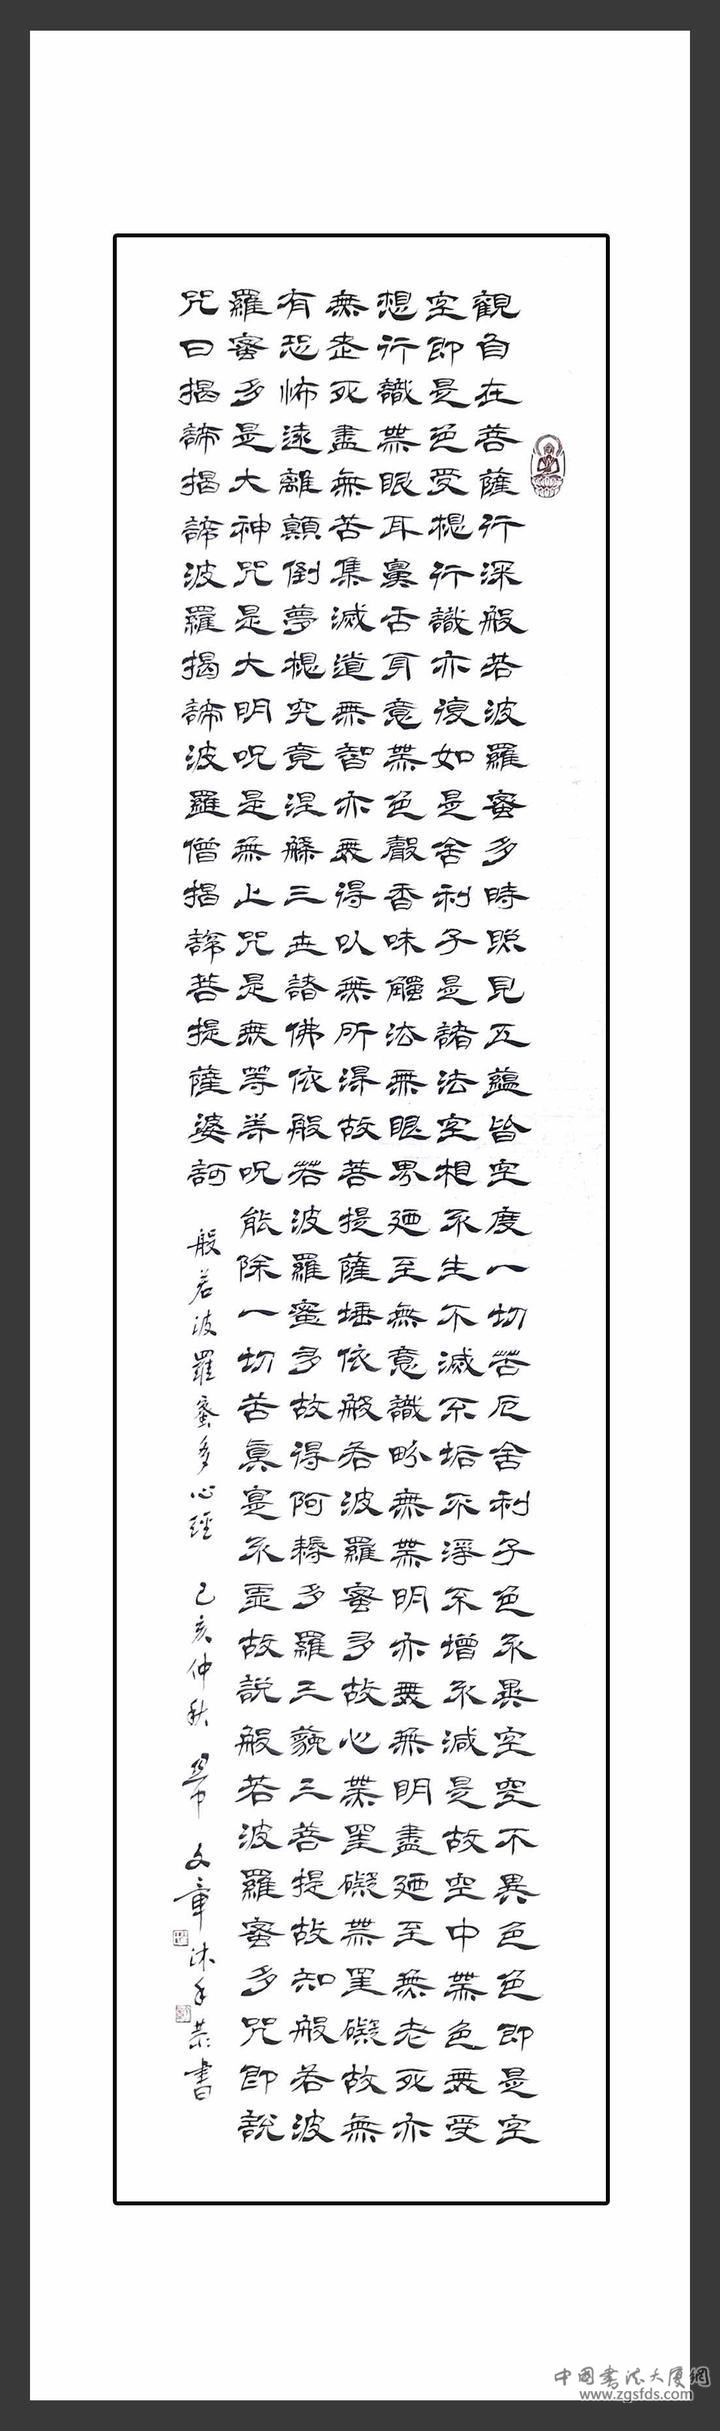 觀自在菩薩行深般若波羅蜜多時照見五蘊皆空度一切苦厄舍利子色不異空空不異色色即是空
空即是色受想行識亦復如是舍利子是諸法空相不生不滅不垢不淨不增不減是故空中無色無受
想行識無眼耳鼻舌身意無色聲香味觸法無眼界廼至無意識界無無明亦無無明盡廼至無老死亦
無老死盡無苦集滅道無智亦無得以無所得故菩提薩埵依般若波羅蜜多故心無罣礙無罣礙故無
有恐怖遠離顛倒夢想究竟涅槃三世諸佛依般若波羅蜜多故得阿耨多羅三藐三菩提故知般若波
羅蜜多是大神咒是大明呪是無上咒是無等等呪能除一切苦真實不虛故說般若波羅蜜多咒即說
咒曰揭諦揭諦波羅揭諦波羅僧揭諦菩提薩婆訶
般若波羅蜜多心經 己亥仲秋 文章沐手恭書
中国书法大厦網
www.zgsfds.com